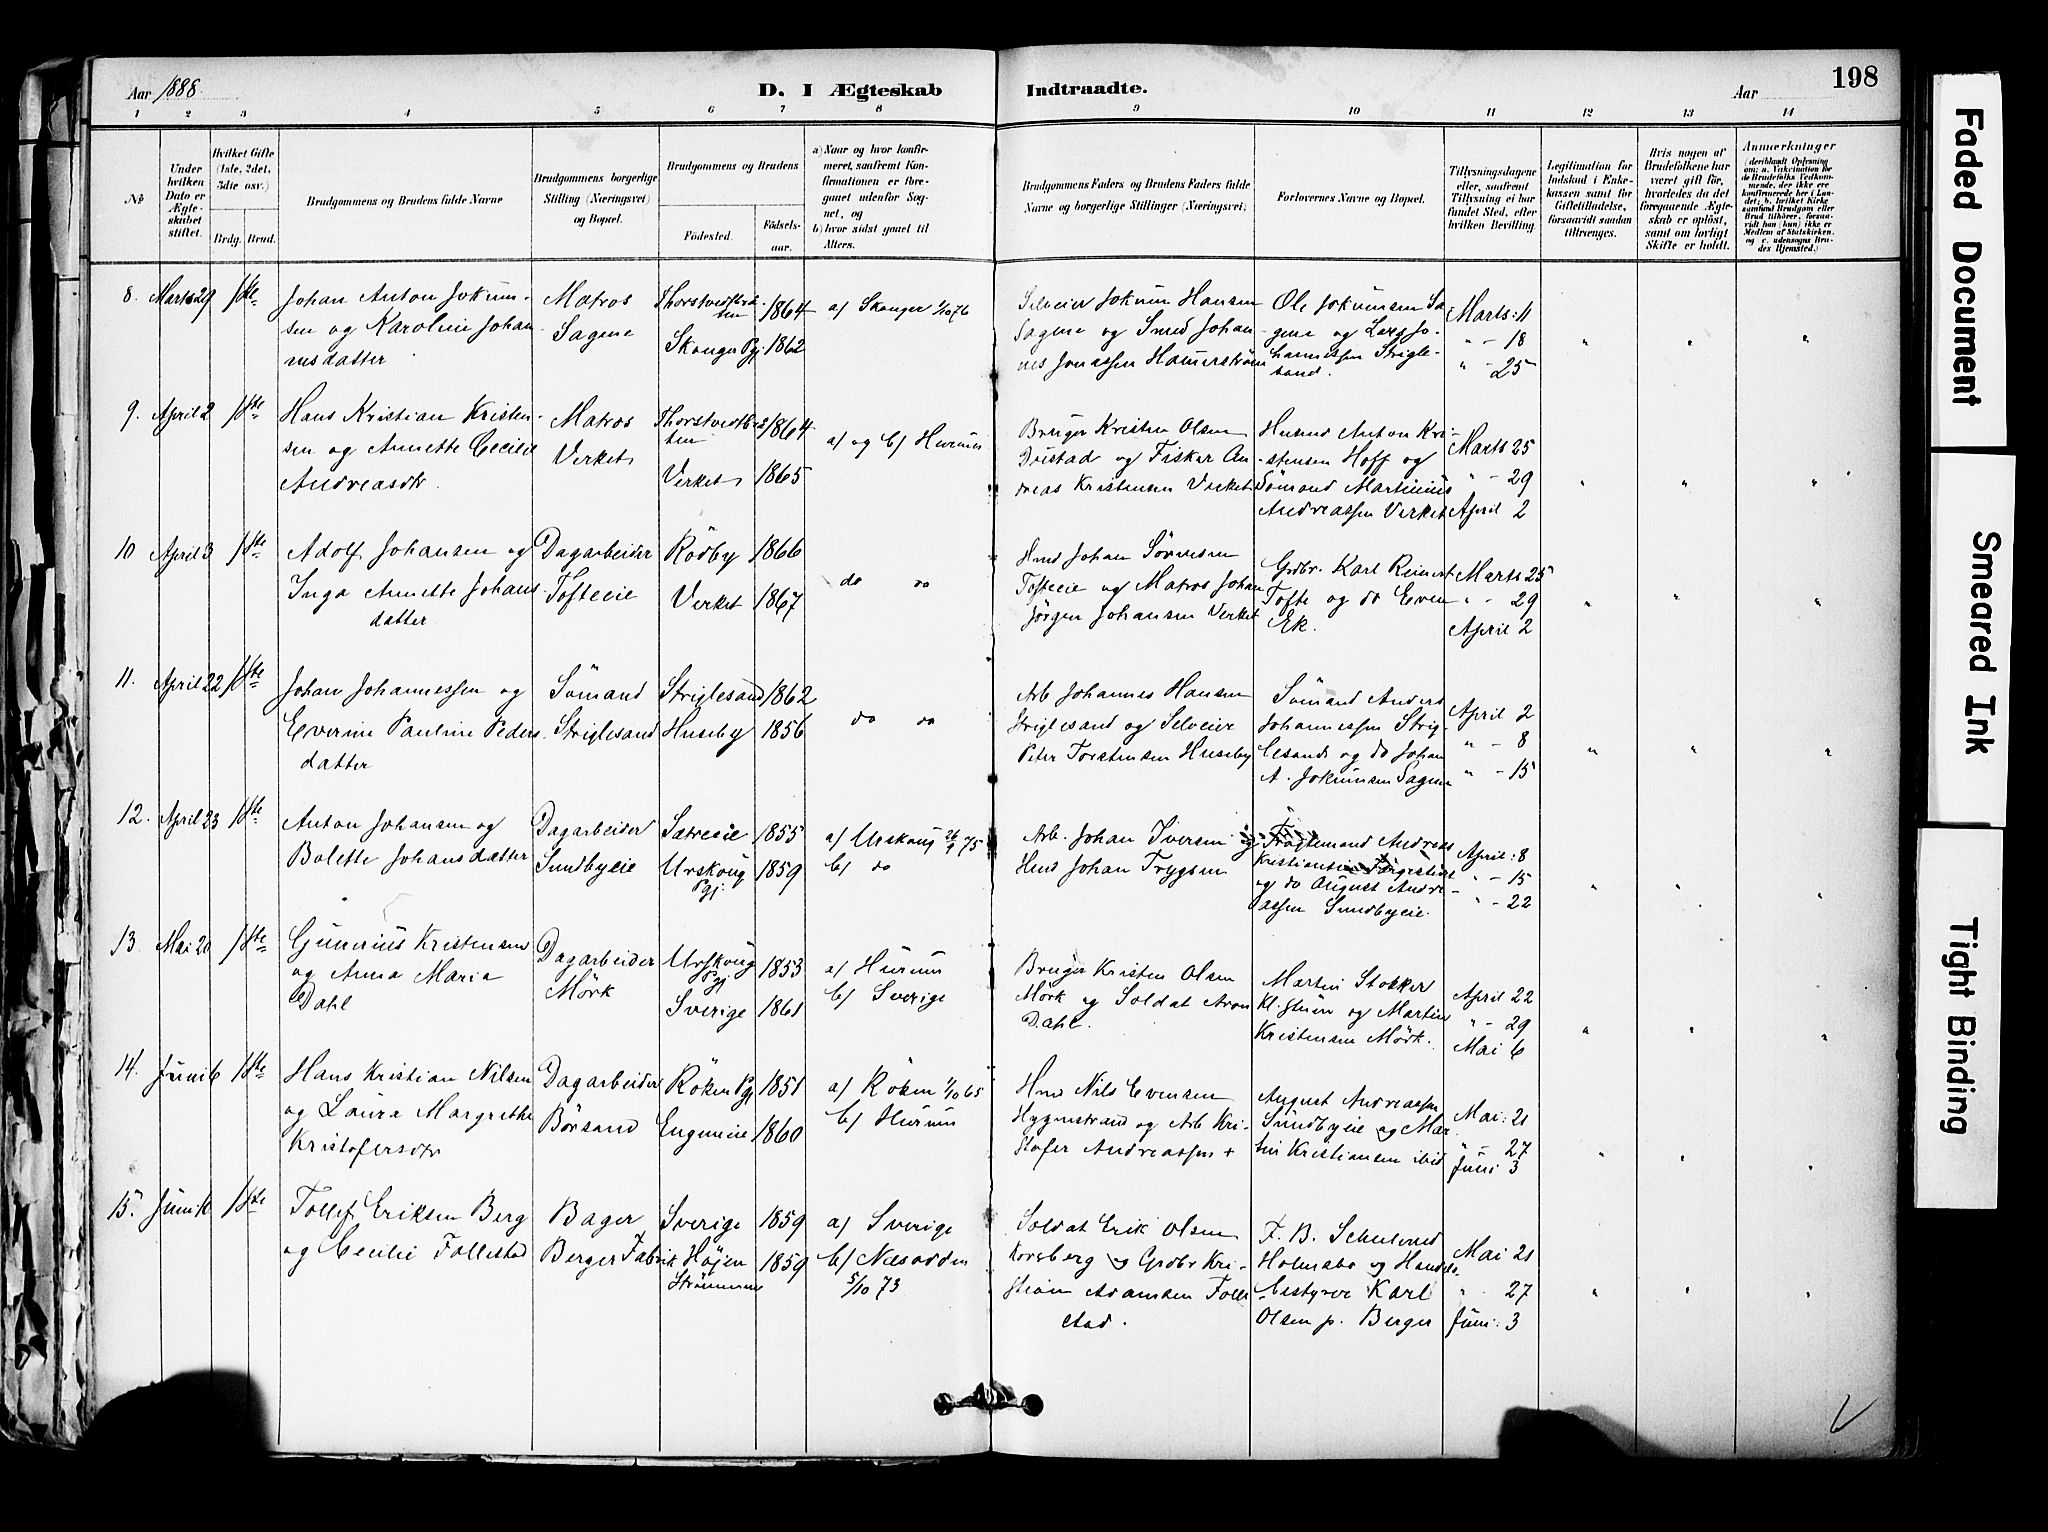 Aar 1888.
D. I Ægteskab
Indtraadte.
Aar
198
1 2 3 4 5 6 7 8 9 10 11 12 13 14
№
Under hvilken Dato er Ægteskabet stiftet.
Hvilket Gifte (1ste, 2det, 3die osv.)
Brdg. Brud.
Brudgommens og Brudens fulde Navne
Brudgommens borgerlige Stilling (Næringsvei) og Bopæl.
Brudgommens og Brudens
Fødested.
Fødselsaar.
a) Naar og hvor konfirmeret, saafremt Konfirmationen er foregaaet udenfor Sognet, og
b) hvor sidst gaaet til Alters.
Brudgommens Faders og Brudens Faders fulde Navne og borgerlige Stillinger (Næringsvei)
Forlovernes Navne og Bopæl.
Tillysningsdagene eller, saafremt Tillysning ei har fundet Sted, efter hvilken Bevilling.
Legitimation for Indskud i Enkekassen samt for Giftetilladelse, forsaavidt saadan tiltrænges.
Hvis nogen af Brudefolkene har været gift før, hvorledes da det foregaaende Ægteskab er opløst, samt om lovligt Skifte er holdt.
Anmærkninger
8. Marts 29 1ste
Johan Anton Jokum-
sen og Karoline Johan-
nesdatter
Matros
Sagene
1864
Skouger Pgj 1862
a) Skouger 1/10 76
Selveier Jokum Hansen
Sagene og Smed Johan-
nes Jonassen Hamerstrøm
Ole Jokumsen Sa
gene og Lars Jo-
hannessen Strigle-
sand.
Marts: 11
" - 18
" - 25
9. April 2 1ste
Hans Kristian Kristen-
sen og Annette Cecilie
Andreasdtr.
Matros
Verket
1864
Verket 1865
a) og b) Hurum
Bruger Kristen Olsen
og Fisker An-
dreas Kristensen Verket
Husmd Anton Kri-
stensen Hoff og
Sömand Martinius
Andreassen Verket
Marts 25
" - 29
April 2
10 April 3 1ste
Adolf Johansen og
Inga Annette Johans
datter
Dagarbeider
Tofteeie
Rödby 1866
Verket 1867
do do
Hmd Johan Sörensen
Tofteeie og Matros Johan
Jörgen Johansen Verket
Grdbr. Karl Reinert
Tofte og do Even
Ek.
Marts 25
" - 29
April 2
11. April 22 1ste
Johan Johannessen og
Everine Pauline Peders
datter
Sömand
Striglesand
Striglesand 1862
Huseby 1856
do do
Arb Johannes Hansen
Striglesand og Selveier
Peter Torstensen Huseby
Sömand Anders
Johannessen Strig-
lesand og do Johan
A. Jokumsen Sagene
April 2
" - 8
" - 15
12. April 23 1ste
Anton Johansen og
Bolette Johansdatter
Dagarbeider
Sundbyeie
Sætreeie 1855
Urskoug Pgj. 1859
a) Urskoug 26/9 75
b) do
Arb. Johan Iversen og
Hmd Johan Trygsen
Andreas
Kristiansen
og do August Andre-
assen Sundbyeie.
April: 8
" - 15
" - 22
13. Mai 20 1ste
Gunerius Kristensen
og Anna Maria
Dahl
Dagarbeider
Mörk
Urskoug Pgj 1853
Sverige 1861
a) Hurum
b) Sverige
Bruger Kristen Olsen
Mörk og Soldat Aron
Dahl.
Martin Stokker
og Martin
Kristensen Mörk.
April 22
" - 29
Mai 6
14. Juni 6 1ste
Hans Kristian Nilsen
og Laura Margrethe
Kristofersdtr
Dagarbeider
Börsand
Röken Pgj 1851
Engeneie 1860
a) Röken 1/10 65
b) Hurum
Hmd Nils Evensen
Hyggenstrand og Arb Kri-
stofer Andreassen +
August Andreassen
Sundbyeie og Mar
tin Kristiansen ibid
Mai: 21
" - 27
Juni 3
15. Juni 1ste
Tollef Eriksen Berg
og Cecilie Follestad
Bager
Berger Fabrik
Sverige 1859
Höjen
Strömmen 1859
a) Sverige
b) Næsodden
5/10 73
Soldat Erik Olsen
Korsberg og Grdbr Kri-
stian Adamsen Folle
stad.
F. B.
Holmsbo og Handels-
bestyrer Karl
Olsen p. Berger
Mai 21
" 27
Juni: 3
Faded Document
Smeared Ink
Tight Binding